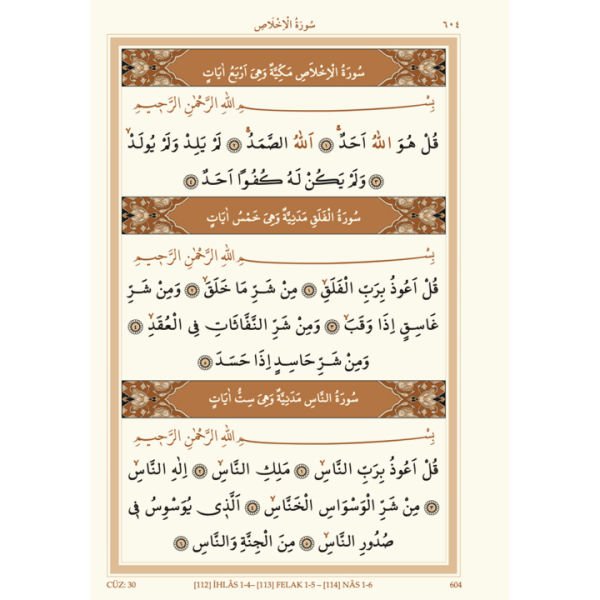 سُورَةُ الْاِخْلَاصِ ٦٠٤
سُورَةُ الْاِخْلَاصِ مَكِّيَّةٌ وَهِىَ اَرْبَعُ اٰيَاتٍ
بِسْمِ اللهِ الرَّحْمٰنِ الرَّح۪يمِ
قُلْ هُوَ اللهُ اَحَدٌۚ ﴿١﴾ اَللهُ الصَّمَدُۚ ﴿٢﴾ لَمْ يَلِدْ وَلَمْ يُولَدْۙ
﴿٣﴾ وَلَمْ يَكُنْ لَهُ كُفُوًا اَحَدٌ ﴿٤﴾
سُورَةُ الْفَلَقِ مَدَنِيَّةٌ وَهِىَ خَمْسُ اٰيَاتٍ
بِسْمِ اللهِ الرَّحْمٰنِ الرَّح۪يمِ
قُلْ اَعُوذُ بِرَبِّ الْفَلَقِۙ ﴿١﴾ مِنْ شَرِّ مَا خَلَقَۙ ﴿٢﴾ وَمِنْ شَرِّ
غَاسِقٍ اِذَا وَقَبَۙ ﴿٣﴾ وَمِنْ شَرِّ النَّفَّاثَاتِ فِى الْعُقَدِۙ ﴿٤﴾
وَمِنْ شَرِّ حَاسِدٍ اِذَا حَسَدَ ﴿٥﴾
سُورَةُ النَّاسِ مَدَنِيَّةٌ وَهِىَ سِتُّ اٰيَاتٍ
بِسْمِ اللهِ الرَّحْمٰنِ الرَّح۪يمِ
قُلْ اَعُوذُ بِرَبِّ النَّاسِۙ ﴿١﴾ مَلِكِ النَّاسِۙ ﴿٢﴾ اِلٰهِ النَّاسِۙ
﴿٣﴾ مِنْ شَرِّ الْوَسْوَاسِ الْخَنَّاسِۙ ﴿٤﴾ اَلَّذ۪ى يُوَسْوِسُ ف۪ى
صُدُورِ النَّاسِۙ ﴿٥﴾ مِنَ الْجِنَّةِ وَالنَّاسِ ﴿٦﴾
CÜZ: 30 [112] İHLÂS 1-4– [113] FELAK 1-5 – [114] NÂS 1-6 604